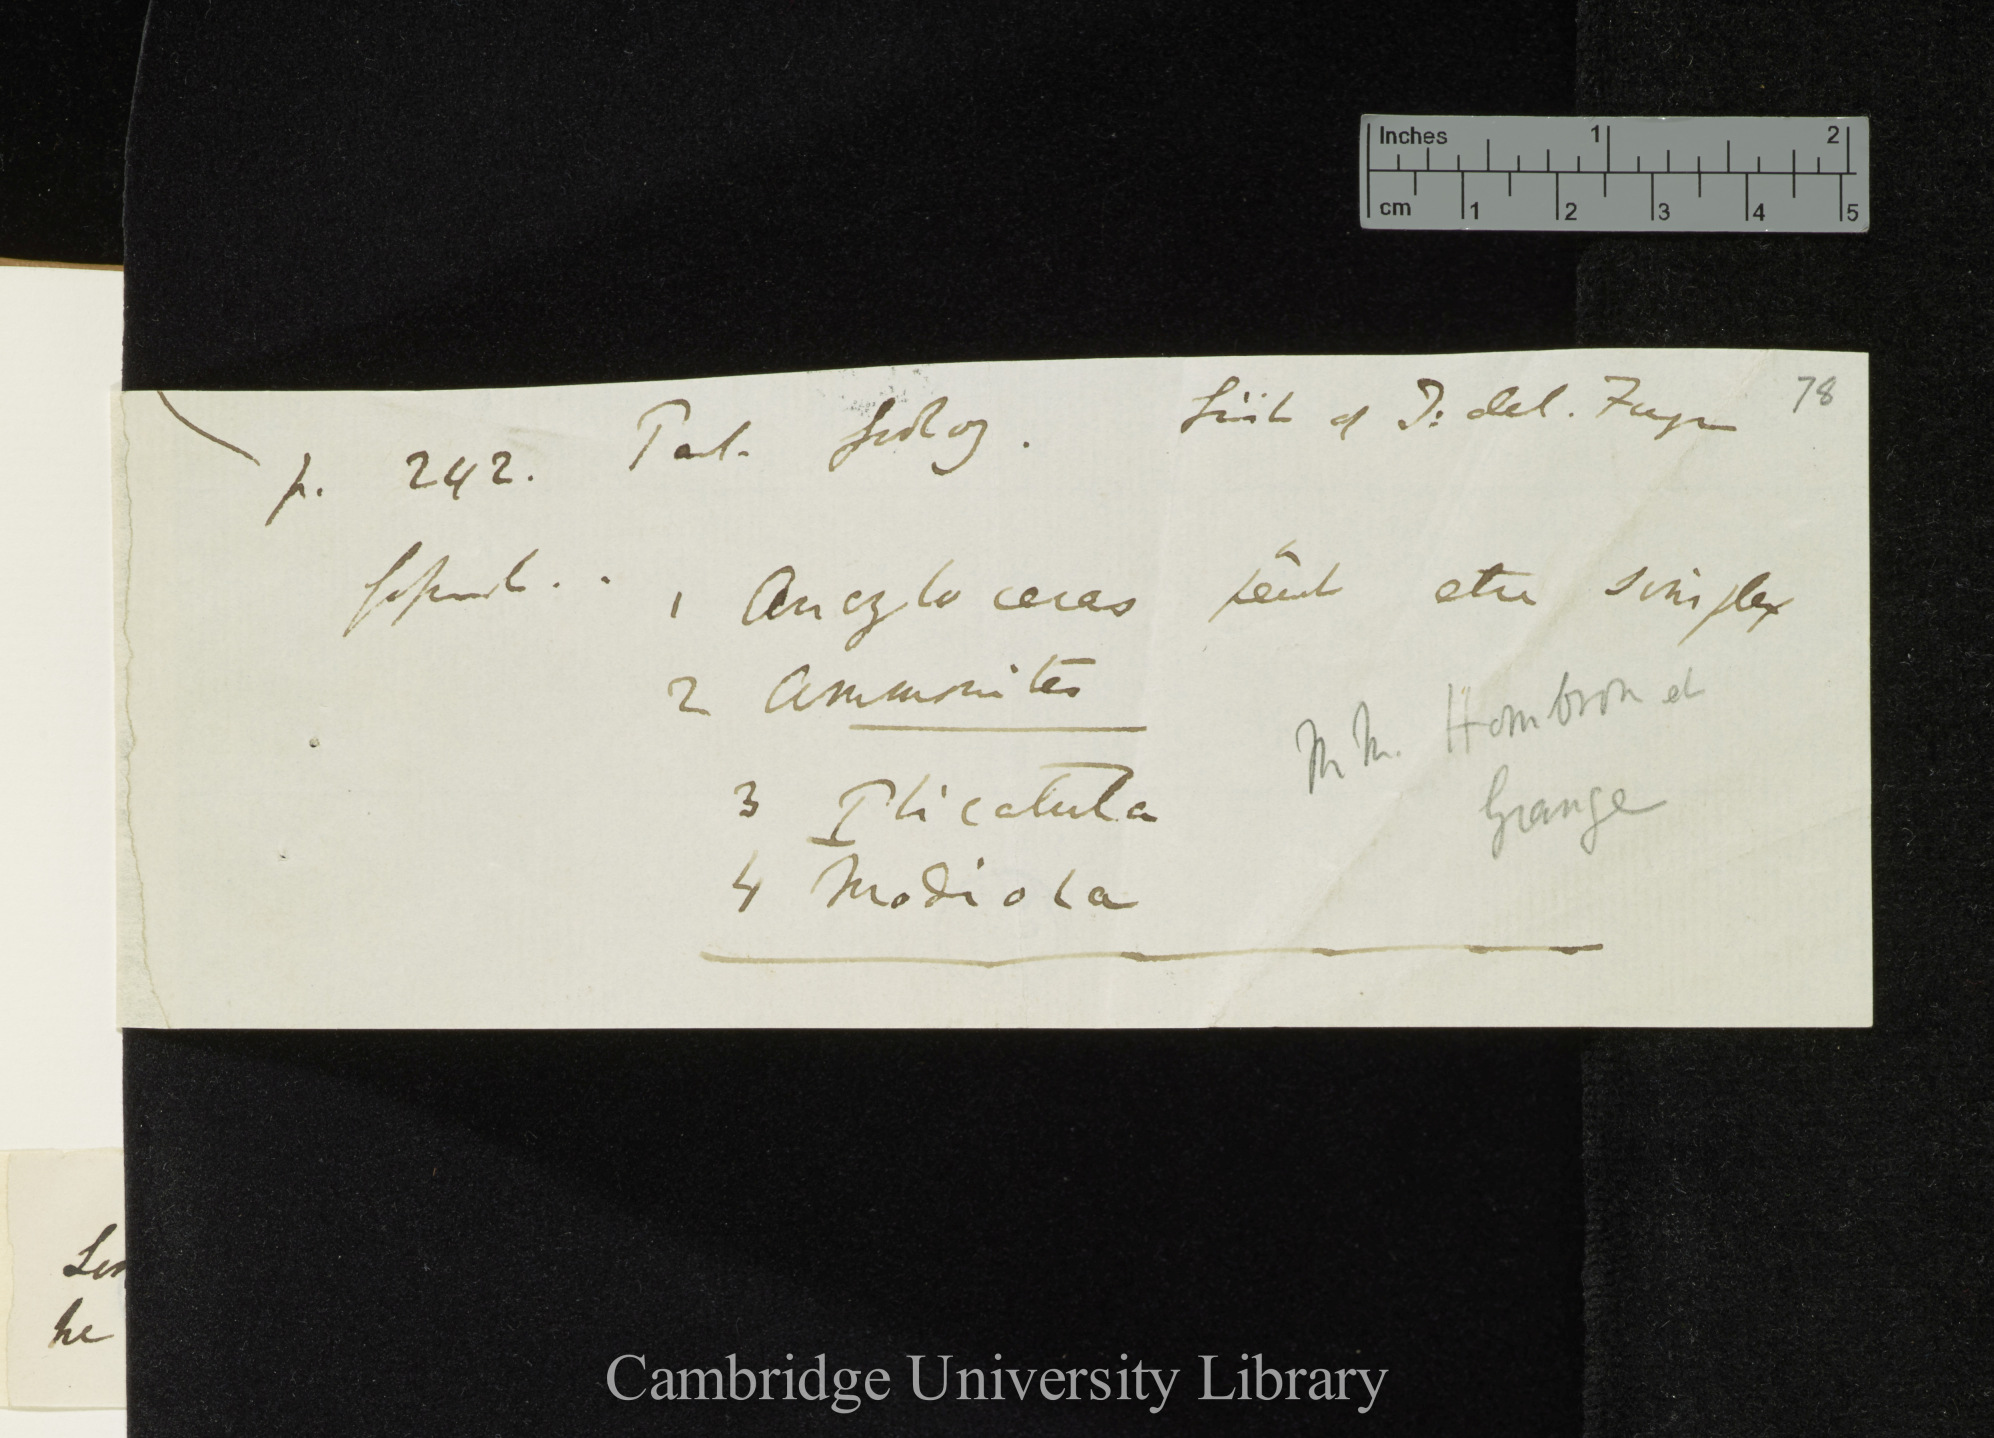 78
p. 242. Part. Geolog. South of T. del. Fuego
1 Ancyloceras peut etre simplex
2 Ammonites
MM. Hombron et
Grange
3 Plicatula
4 Modiola
he
Inches 1 2
cm 1 2 3 4 5
Cambridge University Library